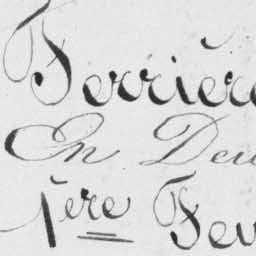 Ferrière
En Deu
1ère Feu